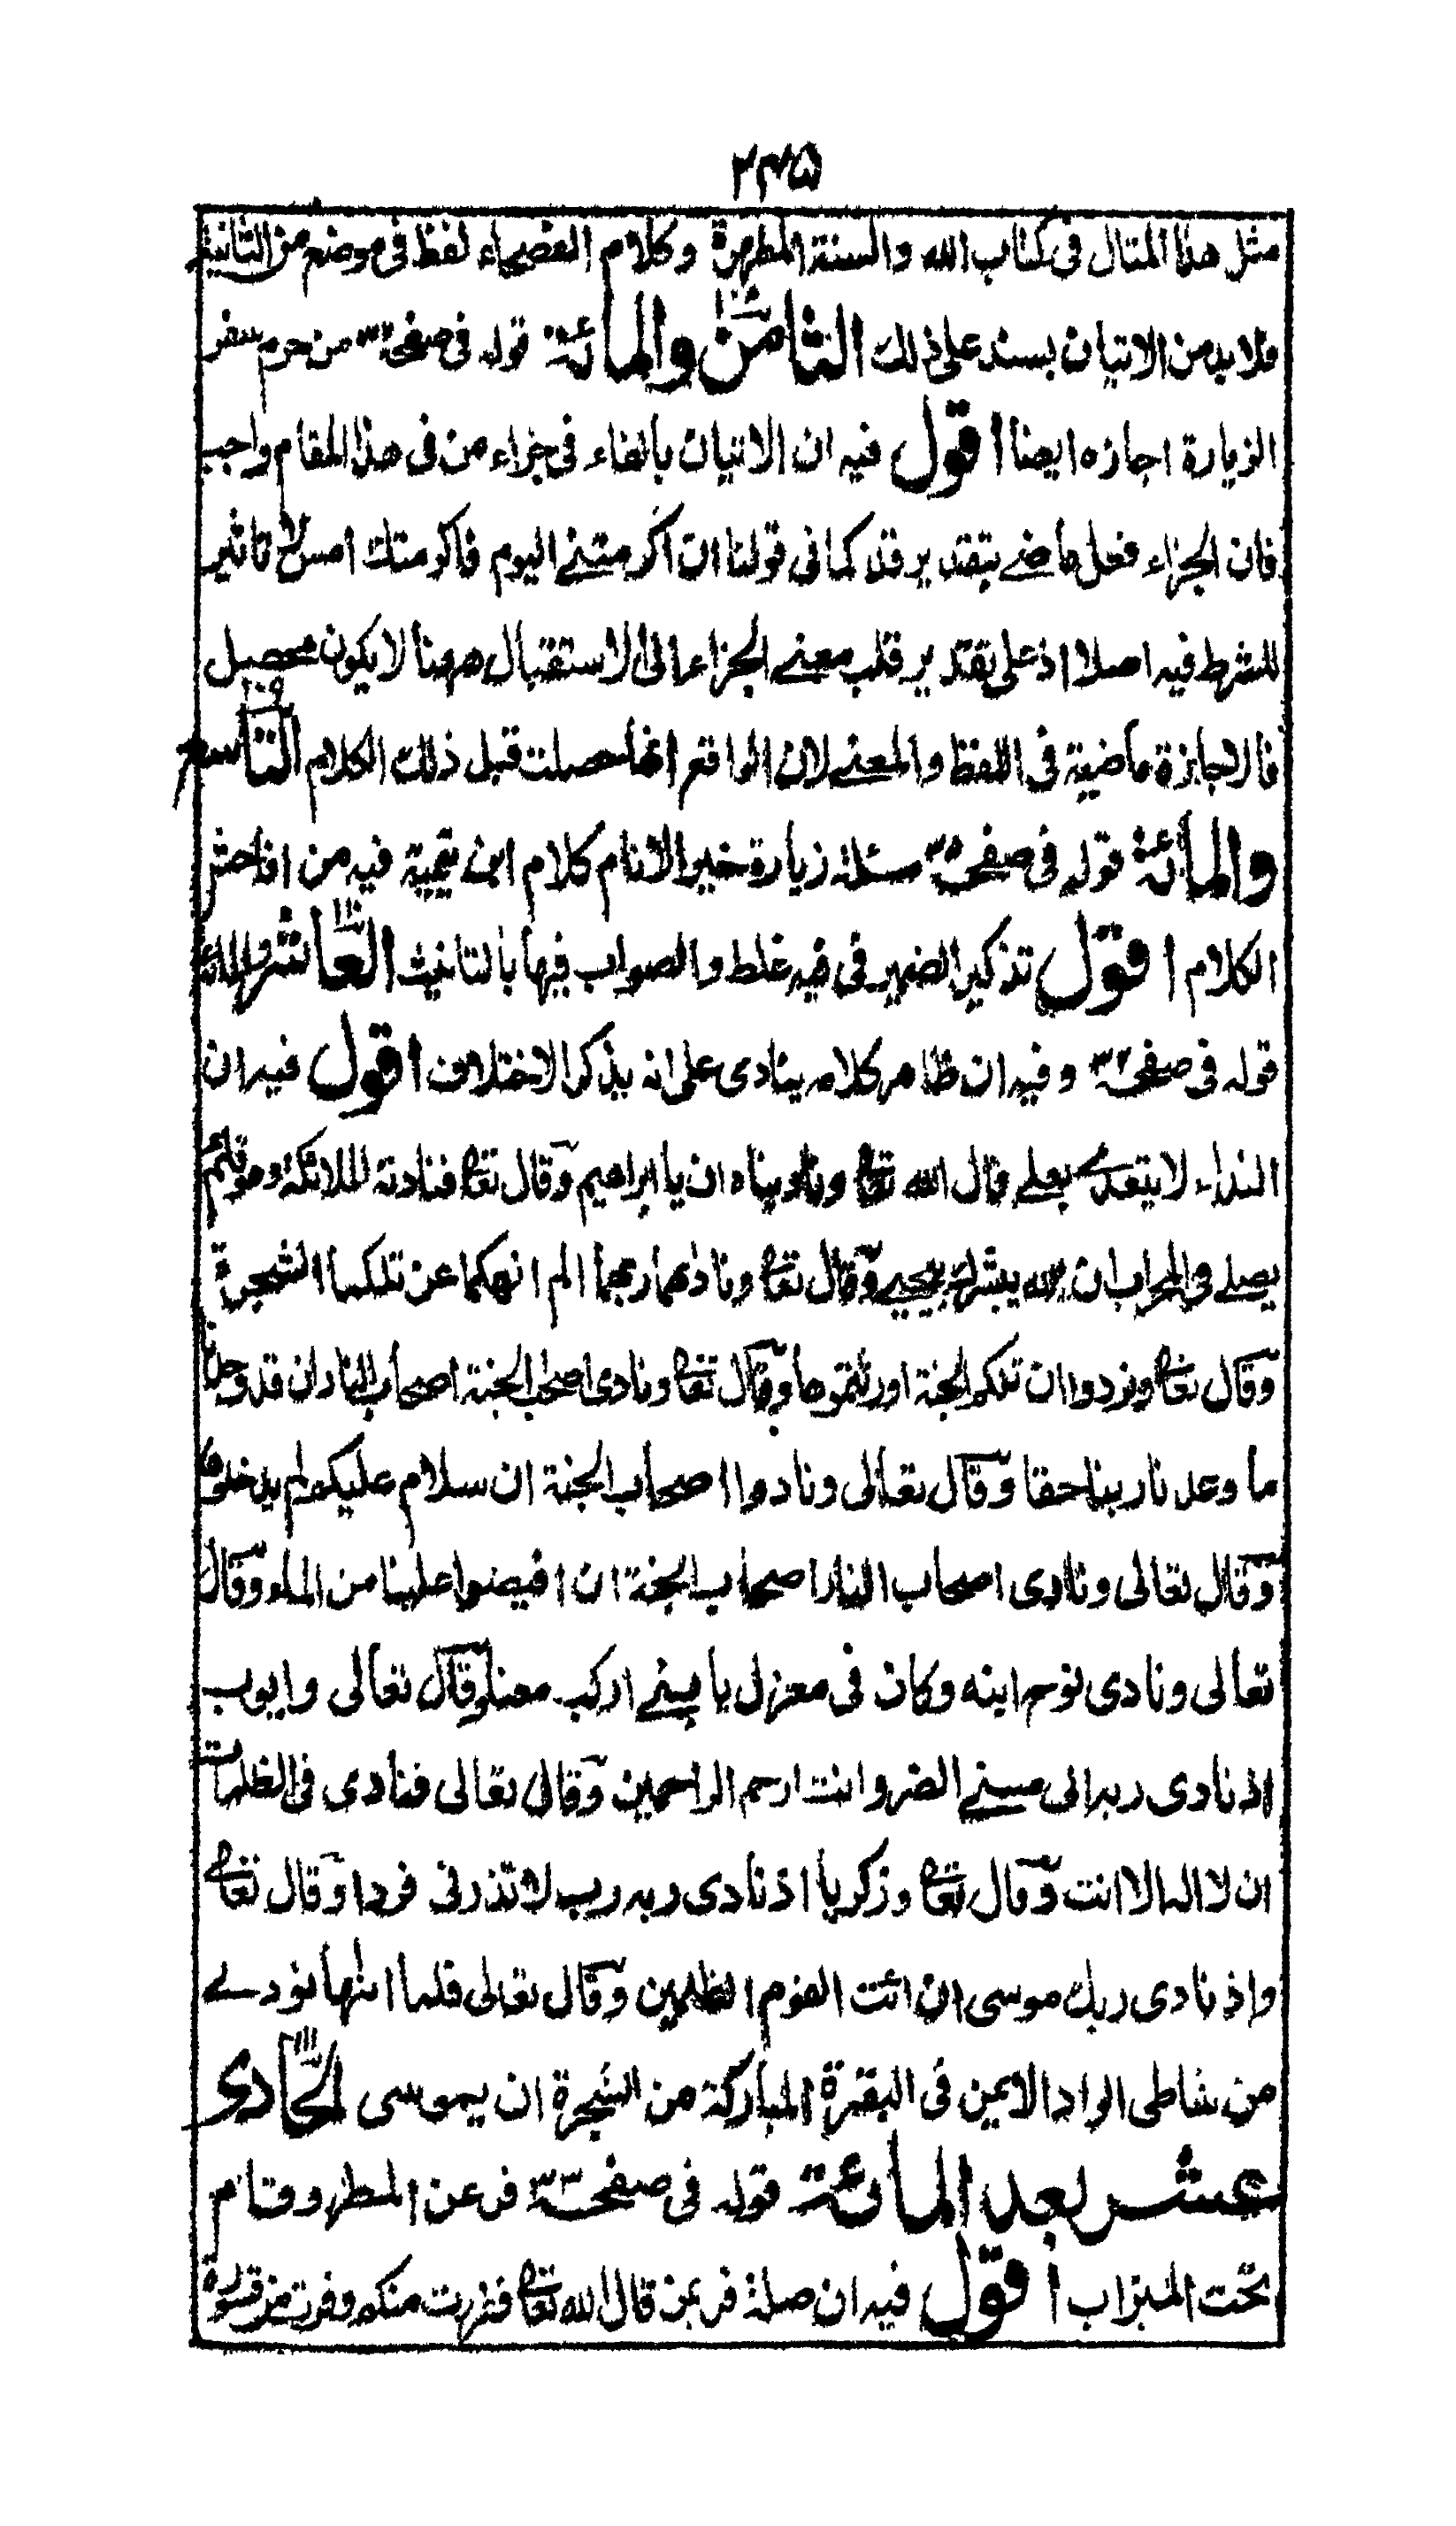 ٢٣٥
مثل هذا المثال فى كتاب الله والسنة المطهرة وكلام الفصحاء لفظ فى موضع من الثانية
فلا بد من الاتيان بسند على ذلك الثامن والمائة قوله فى صفحة من حرم سفر
الزيارة اجازه ايضا اقول فيه ان الاتيان بالفاء فى جزاء من فى هذا المقام واجب
فان الجزاء فعل ماضے بتقدير قد كما فى قولنا ان اكرمتنے اليوم فاكرمتك امس لا تاثير
للشرط فيه اصلا اذ على تقدير قلب معنے الجزاء الى الاستقبال ههنا لا يكون محصيل
فالاجازة ماضية فى اللفظ والمعنے لان الواقع انما حصلت قبل ذلك الكلام التاسع
والمائة قوله فى صفحة مسئلة زيارة خير الانام كلام ابن تيمية فيه من افاحش
الكلام اقول تذكير الضمير فى فيه غلط والصواب فيها بالتانيث العاشر والمائة
قوله فى صفحة وفيه ان ظاهر كلامه ينادى على انه يذكر الاختلاف اقول فيه ان
النداء لا يتعدے بعلے قال الله تعا وناديناه ان يا ابراهيم وقال تعا فنادته الملائكة وهو قائم
يصلے فى المحراب ان الله يبشرك بيحيے وقال تعا وناداهما ربهما الم انهكما عن تلكما الشجرة
وقال تعا ونودوا ان تلكم الجنة اورثتموها وقال تعا ونادى اصحب الجنة اصحاب النار ان قد وجدنا
ما وعدنا ربنا حقا وقال تعالى ونادوا اصحاب الجنة ان سلام عليكم لم يدخلوها
وقال تعالى ونادى اصحاب النار اصحاب الجنة ان افيضوا علينا من الماء وقال
تعالى ونادى نوح ابنه وكان فى معزل يا بنے اركب معنا وقال تعالى وايوب
اذ نادى ربه انى مسنے الضر وانت ارحم الراحمين وقال تعالى فنادى فى الظلمات
ان لا اله الا انت وقال تعا وزكريا اذ نادى ربه رب لا تذرنى فردا وقال تعا
واذ نادى ربك موسى ان ائت القوم الظلمين وقال تعالى فلما اتٰها نودے
من شاطى الواد الايمن فى البقعة المباركة من الشجرة ان يموسى الحادى
عشر بعد المائة قوله فى صفحة فر عن المطر وقام
تحت الميزاب اقول فيه ان صلة فر بمن قال الله تعا ففررت منكم وفرت من قسورة